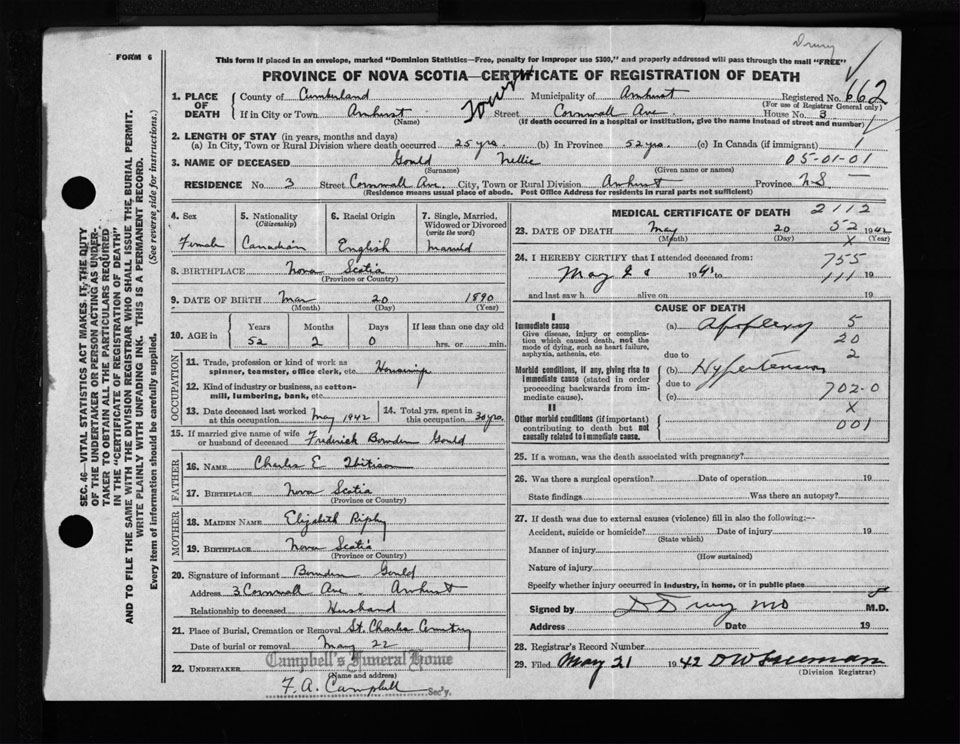 Drury
FORM 6
This form if placed in an envelope, marked "Dominion Statistics—Free, penalty for improper use $300," and properly addressed will pass through the mail "FREE"
PROVINCE OF NOVA SCOTIA—CERTIFICATE OF REGISTRATION OF DEATH
1. PLACE OF DEATH
County of Cumberland Municipality of Amherst Registered No. 662
(For use of Registrar General only)
If in City or Town Amherst Town Street Cornwall Ave. House No. 3
(Name) (If death occurred in a hospital or institution, give the name instead of street and number)
2. LENGTH OF STAY (in years, months and days)
(a) In City, Town or Rural Division where death occurred 25 yrs. (b) In Province 52 yrs. (c) In Canada (if immigrant) 1
3. NAME OF DECEASED Gould Nellie 05-01-01
(Surname) (Given name or names)
RESIDENCE No. 3 Street Cornwall Ave. City, Town or Rural Division Amherst Province N.S
(Residence means usual place of abode. Post Office Address for residents in rural parts not sufficient)
4. Sex
Female
5. Nationality
(Citizenship)
Canadian
6. Racial Origin
English
7. Single, Married, Widowed or Divorced
(write the word)
Married
8. BIRTHPLACE Nova Scotia
(Province or Country)
9. DATE OF BIRTH Mar 20 1890
(Month) (Day) (Year)
10. AGE in
Years Months Days If less than one day old
52 2 0 hrs. or min.
OCCUPATION
11. Trade, profession or kind of work as spinner, teamster, office clerk, etc.
12. Kind of industry or business, as cotton-mill, lumbering, bank, etc.
13. Date deceased last worked at this occupation May 1942
14. Total yrs. spent in this occupation 30 yrs.
15. If married give name of wife or husband of deceased Frederick Bowden Gould
FATHER
16. NAME Charles E
17. BIRTHPLACE Nova Scotia
(Province or Country)
MOTHER
18. MAIDEN NAME Elizabeth Ripley
19. BIRTHPLACE Nova Scotia
(Province or Country)
20. Signature of informant Bowden Gould
Address 3 Cornwall Ave Amherst
Relationship to deceased Husband
21. Place of Burial, Cremation or Removal St. Charles Cemetery
Date of burial or removal May 22
22. UNDERTAKER Campbell's Funeral Home
(Name and address)
F. A. Campbell Sec'y.
MEDICAL CERTIFICATE OF DEATH 2112
23. DATE OF DEATH May 20 52 1942
(Month) (Day) X (Year)
24. I HEREBY CERTIFY that I attended deceased from: 755
May 19 to 111 19
and last saw h alive on 19
CAUSE OF DEATH
I
Immediate cause (a) Apoplexy 5
Give disease, injury or complication which caused death, not the mode of dying, such as heart failure, asphyxia, asthenia, etc. 20
due to 2
Morbid conditions, if any, giving rise to immediate cause (stated in order proceeding backwards from immediate cause). (b) Hypertension
due to
(c) 702-0
II X
Other morbid conditions (if important) contributing to death but not causally related to immediate cause. 001
25. If a woman, was the death associated with pregnancy?
26. Was there a surgical operation? Date of operation 19
State findings Was there an autopsy?
27. If death was due to external causes (violence) fill in also the following:—
Accident, suicide or homicide? Date of injury 19
(State which)
Manner of injury
(How sustained)
Nature of injury
Specify whether injury occurred in industry, in home, or in public place
Signed by D Drury MD M.D.
Address Date 19
28. Registrar's Record Number
29. Filed May 21 1942
(Division Registrar)
SEC. 46—VITAL STATISTICS ACT MAKES IT THE DUTY
OF THE UNDERTAKER OR PERSON ACTING AS UNDER-
TAKER TO OBTAIN ALL THE PARTICULARS REQUIRED
IN THE "CERTIFICATE OF REGISTRATION OF DEATH"
AND TO FILE THE SAME WITH THE DIVISION REGISTRAR WHO SHALL ISSUE THE BURIAL PERMIT.
WRITE PLAINLY WITH UNFADING INK. THIS IS A PERMANENT RECORD.
Every item of information should be carefully supplied. (See reverse side for instructions.)